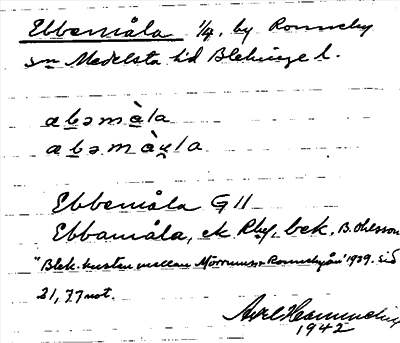 Ebbemåla 1/4, by Ronneby
sn Medelsta hd Blekinge l.
æbəmàla
æbəmàu̯la
Ebbemåla G11
Ebbamåla, ek Rby, bek. B. Ohlsson
"Blek. kusten mellan Mörrumså-Ronnebyån" 1939. sid
31, 77 not.
Axel
1942